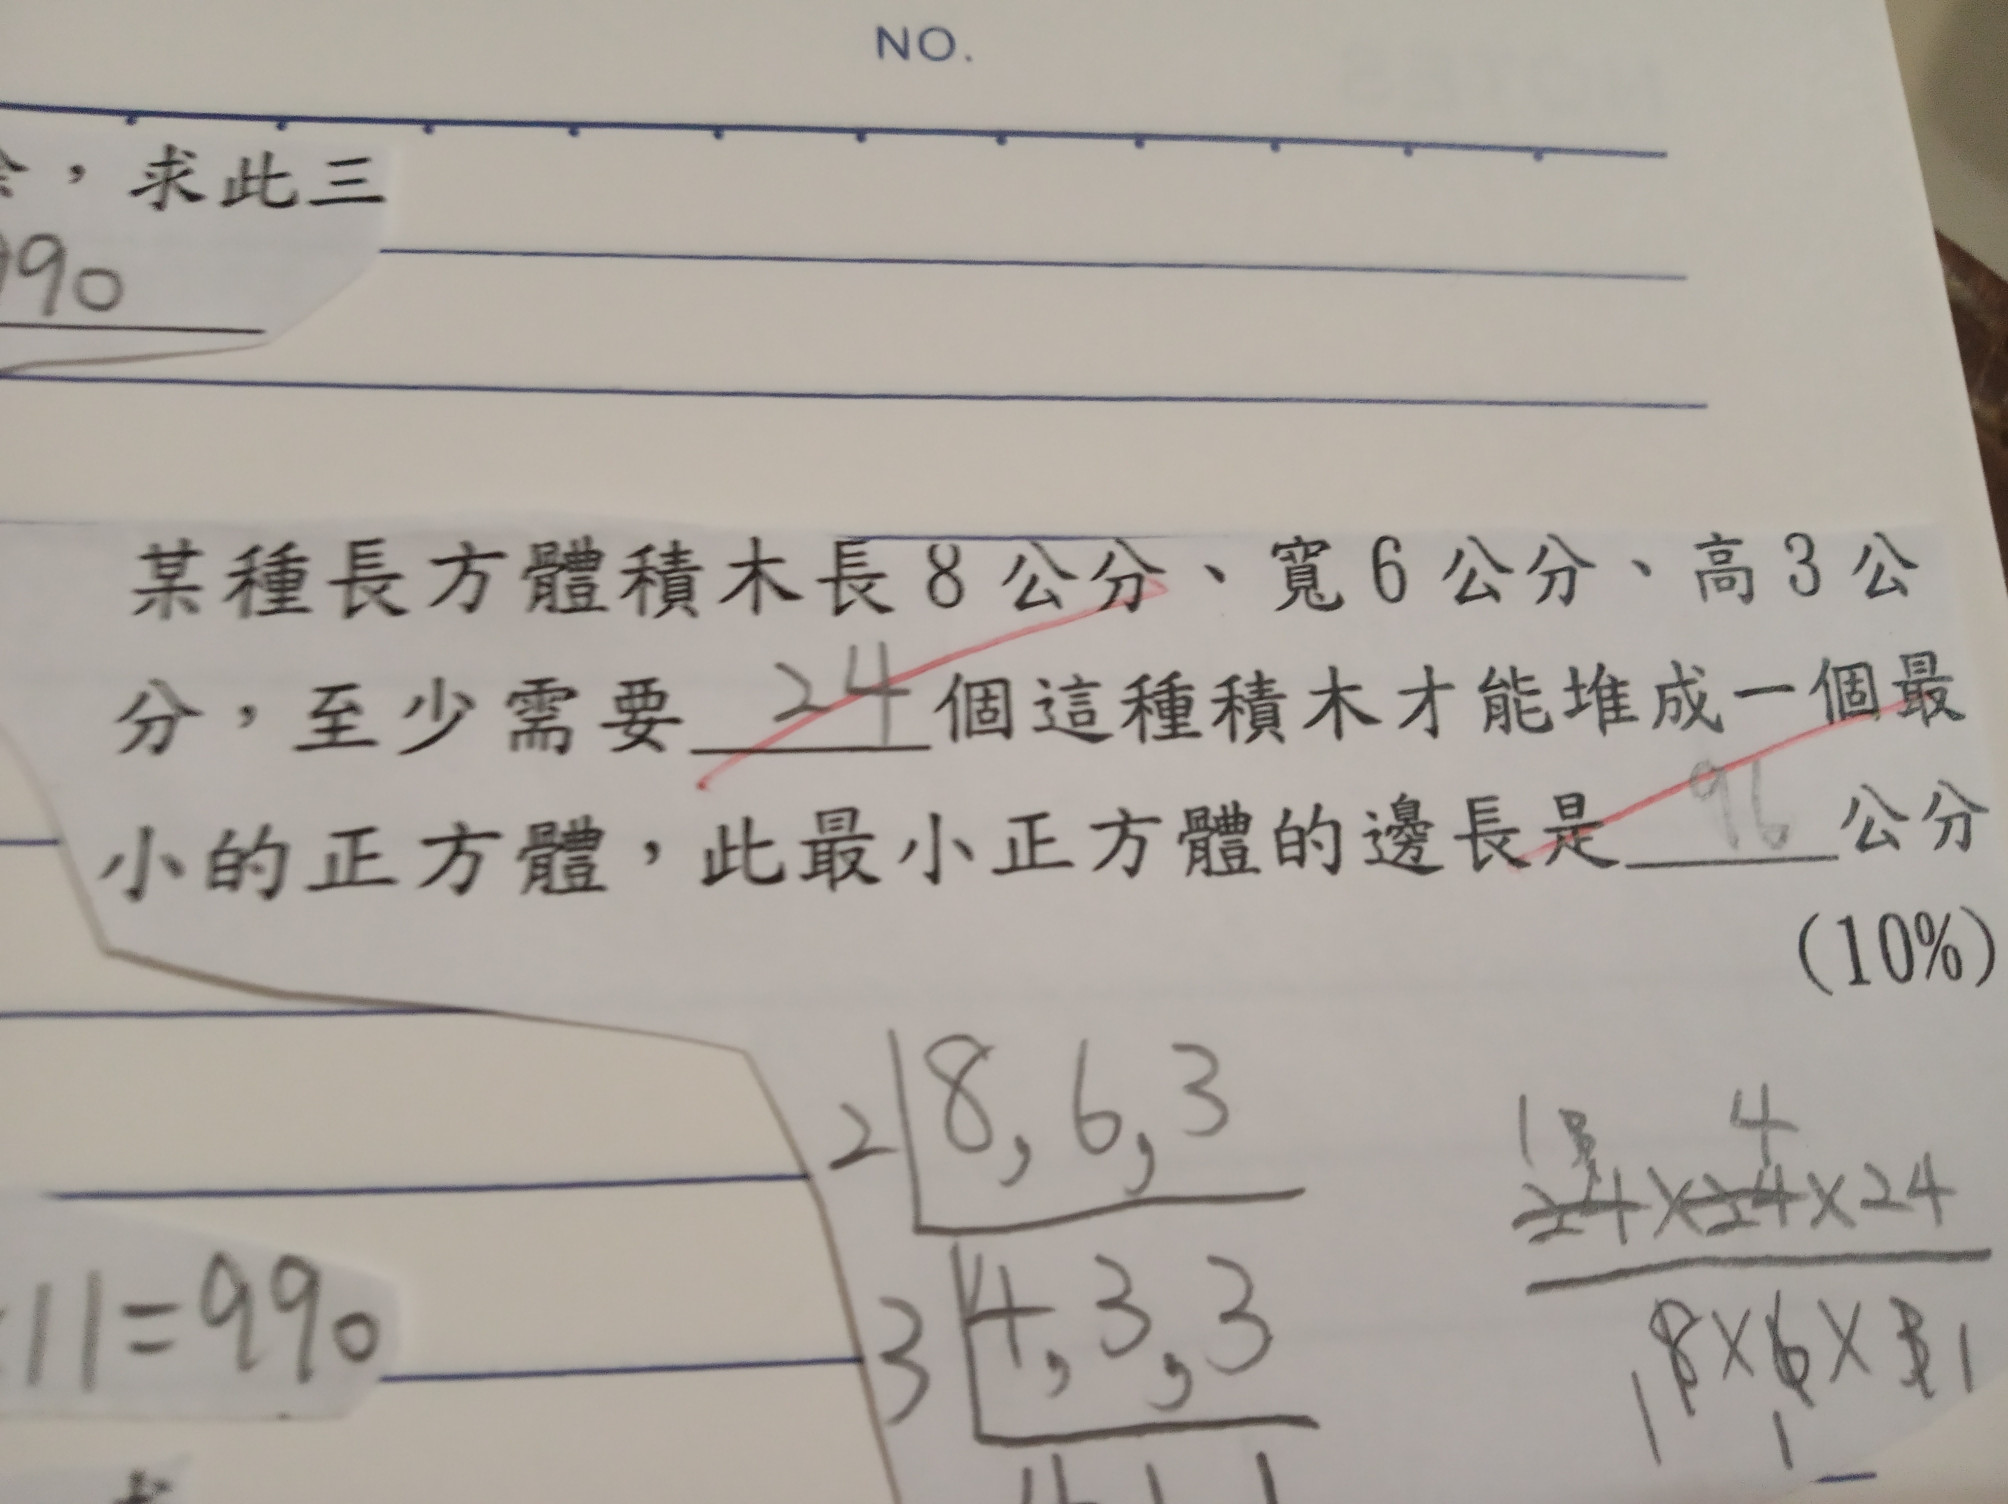 NO.
，求此三
990
某種長方體積木長8公分、寬6公分、高3公
分，至少需要 24 個這種積木才能堆成一個最
小的正方體，此最小正方體的邊長是 96 公分
(10%)
2 8, 6, 3
3 4, 3, 3
4 1 1
1 3 4
24×24×24
8×6×3 1
1 1
11=990